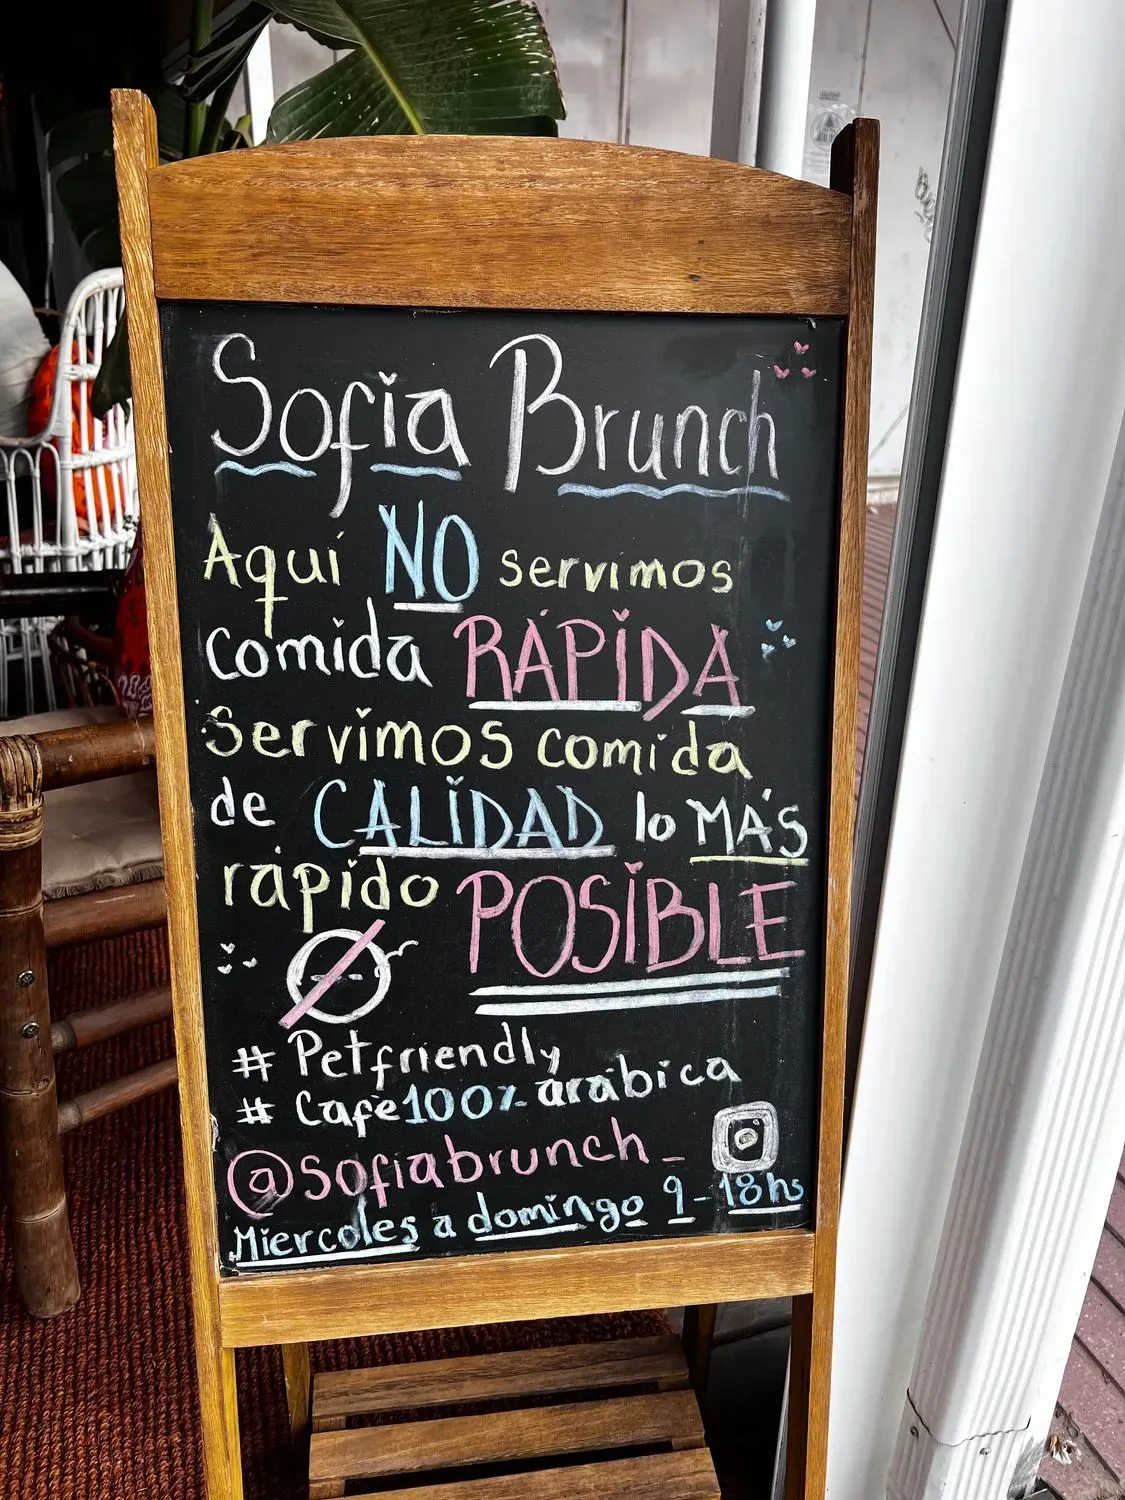 Sofia Brunch
Aquí NO servimos
comida RÁPIDA
Servimos comida
de CALIDAD lo MÁS
rápido POSIBLE
# Petfriendly
# Cafè 100% arábica
@sofiabrunch_
Miercoles a domingo 9-18hs